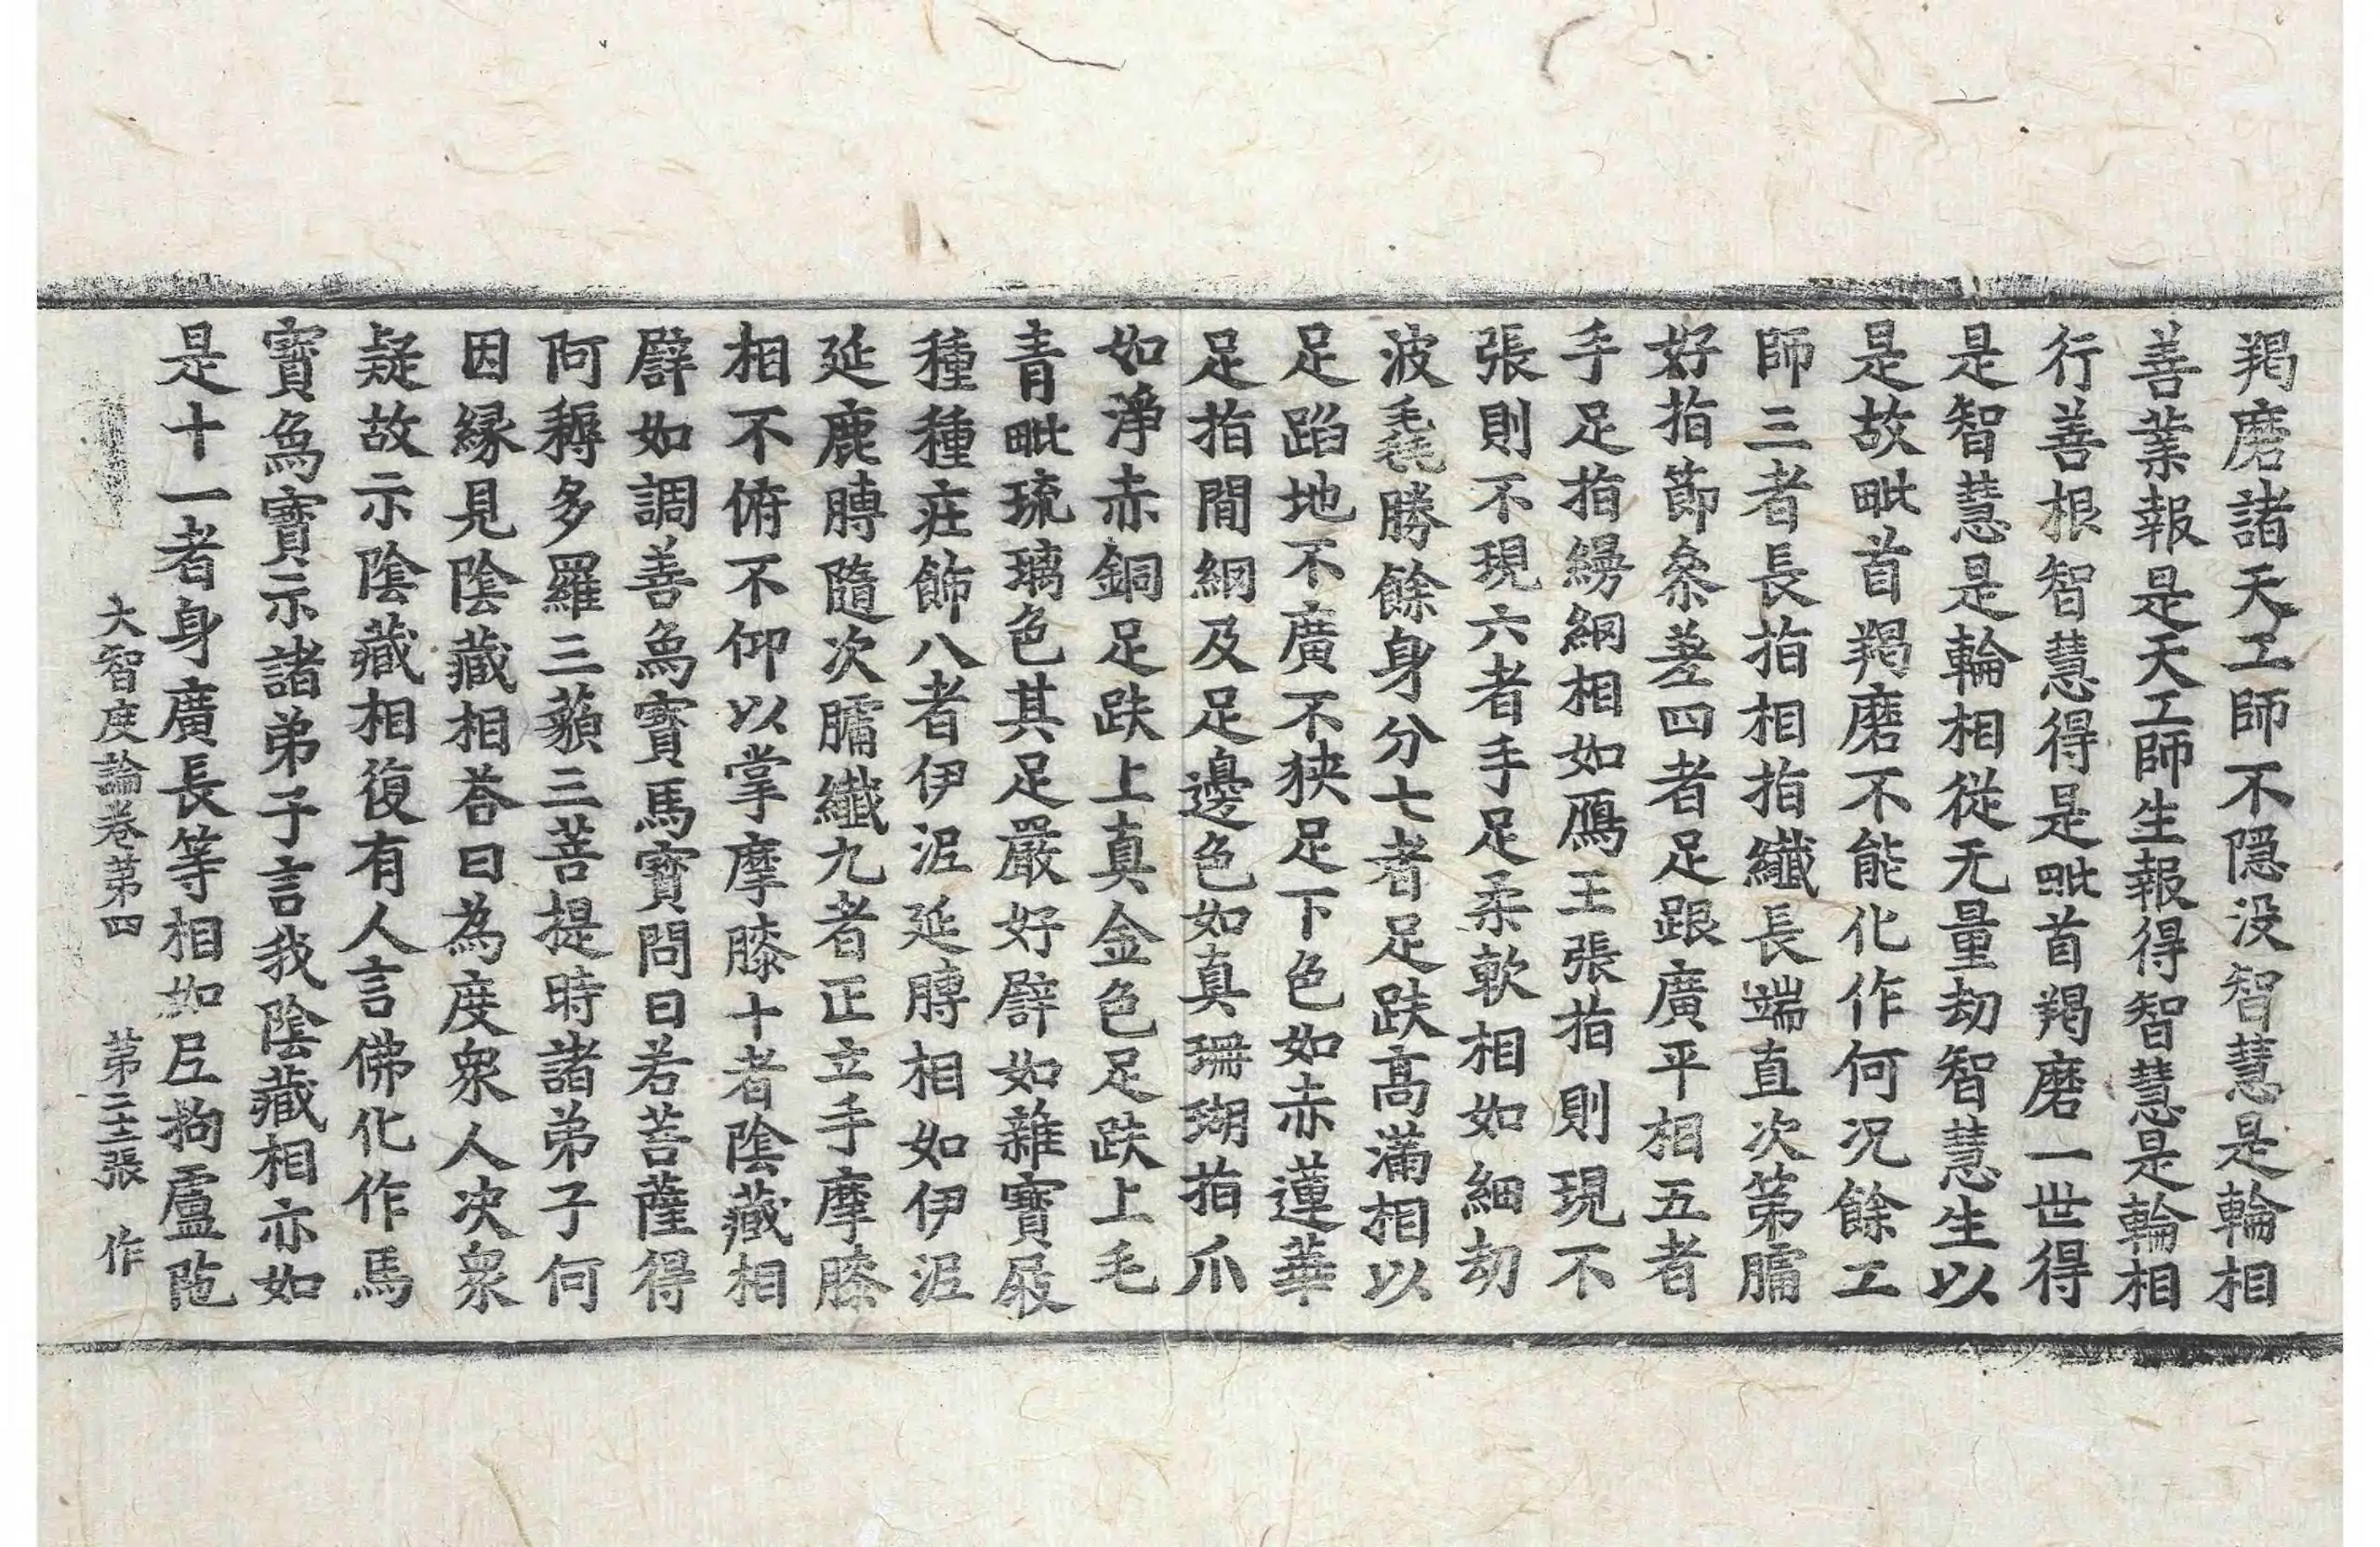 羯磨諸天工師不隱没智慧是輪相
善業報是天工師生報得智慧是輪相
行善根智慧得是毗首羯磨一世得
是智慧是輪相從无量劫智慧生以
是故毗首羯磨不能化作何况餘工
師三者長指相相指纖長端直次第𦟛
好指節叅差四者足跟廣平相五者
手足指縵網相如鴈王張指則現不
張則不現六者手足柔軟相如細劫
波毳勝餘身分七者足趺高滿相以
足蹈地不廣不狹足下色如赤蓮華
足指間網及足邊色如真珊瑚指爪
如淨赤銅足趺上真金色足趺上毛
青毗琉璃色其足嚴好譬如雜寶屐
種種莊飾八者伊泥延䏝相如伊泥
延鹿䏝隨次𦟛纖九者正立手摩膝
相不俯不仰以掌摩膝十者陰藏相
譬如調善象寶馬寶問曰若菩薩得
阿耨多羅三藐三菩提時諸弟子何
因緣見陰藏相荅曰為度衆人决衆
疑故示陰藏相復有人言佛化作馬
寶象寶示諸弟子言我陰藏相亦如
是十一者身廣長等相如尼拘盧陁
大智度論卷第四 第二十二張 作